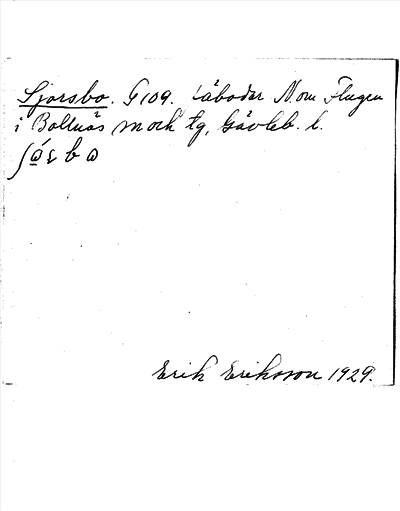 Sjorsbo. G109. Fäbodar N. om Flugen
i Bollnäs sn och tg, Gävleb. l.
Erik Eriksson 1929.